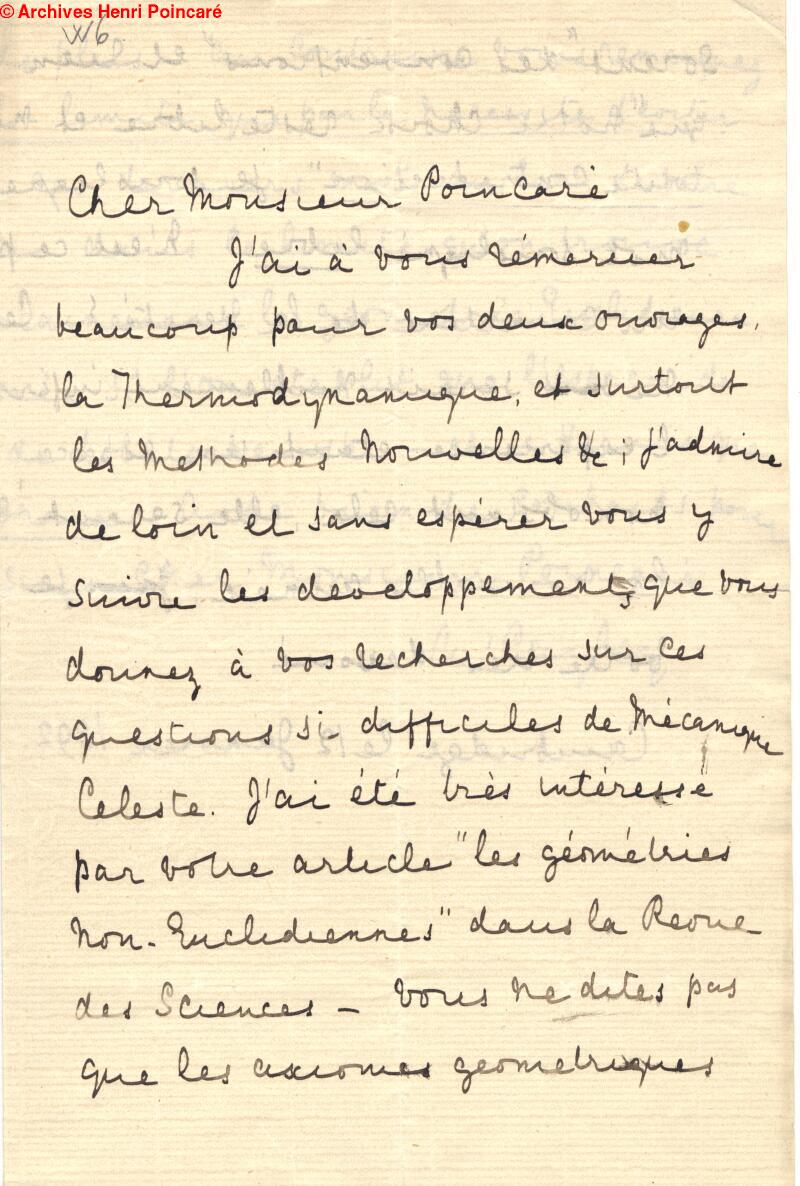 © Archives Henri Poincaré
W6
Cher Monsieur Poincaré
J'ai à vous rémercier
beaucoup pour vos deux ouvrages,
la Thermodynamique, et surtout
les Methodes Nouvelles &c ; j'admire
de loin et sans espérer vous y
suivre les developpements que vous
donnez à vos recherches sur ces
questions si difficiles de Mécanique
Celeste. J'ai été très intéressé
par votre article "les géométries
Non-Euclidiennes" dans la Revue
des Sciences — vous ne dites pas
que les axiomes geometriques